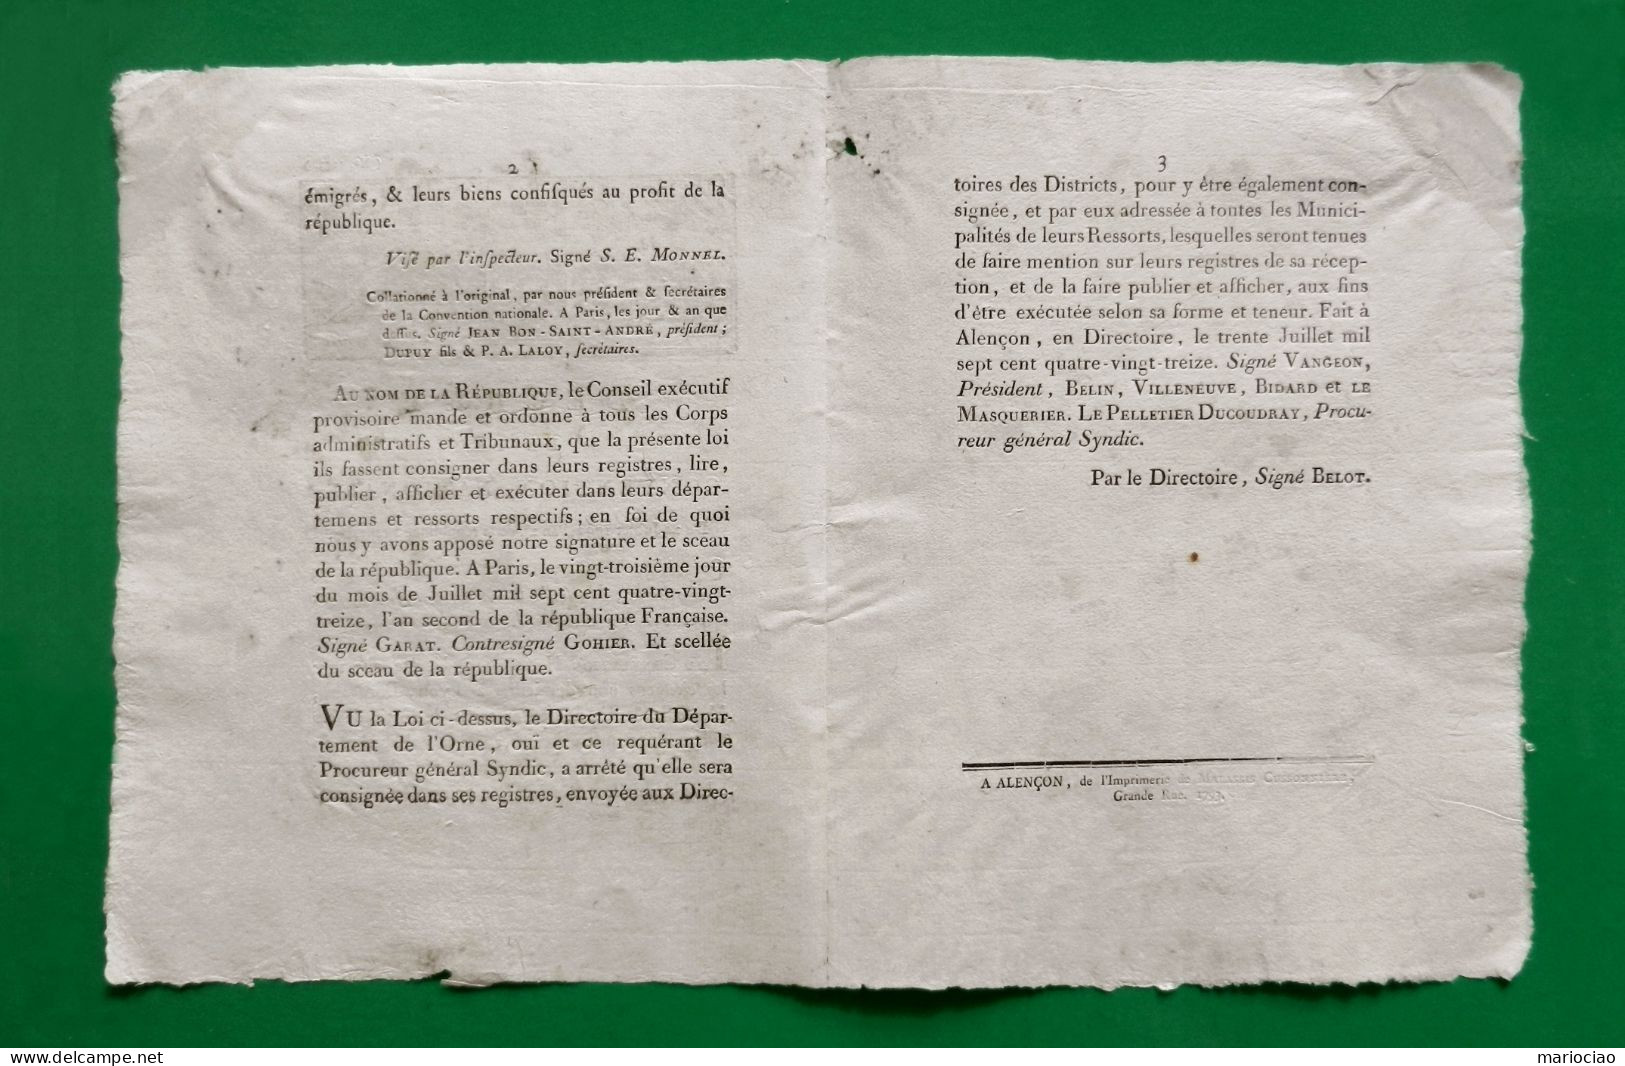 2
émigrés, & leurs biens confiſqués au profit de la
république.
Viſé par l'inſpecteur. Signé S. E. MONNEL.
Collationné à l'original, par nous préſident & ſecrétaires
de la Convention nationale. A Paris, les jour & an que
deſſus. Signé JEAN BON-SAINT-ANDRÉ, préſident;
DUPUY fils & P. A. LALOY, ſecrétaires.
AU NOM DE LA RÉPUBLIQUE, le Conseil exécutif
provisoire mande et ordonne à tous les Corps
administratifs et Tribunaux, que la présente loi
ils fassent consigner dans leurs registres, lire,
publier, afficher et exécuter dans leurs dépar-
temens et ressorts respectifs; en foi de quoi
nous y avons apposé notre signature et le sceau
de la république. A Paris, le vingt-troisième jour
du mois de Juillet mil sept cent quatre-vingt-
treize, l'an second de la république Française.
Signé GARAT. Contresigné GOHIER. Et scellée
du sceau de la république.
VU la Loi ci-dessus, le Directoire du Dépar-
tement de l'Orne, ouï et ce requérant le
Procureur général Syndic, a arrêté qu'elle sera
consignée dans ses registres, envoyée aux Direc-
3
toires des Districts, pour y être également con-
signée, et par eux adressée à toutes les Munici-
palités de leurs Ressorts, lesquelles seront tenues
de faire mention sur leurs registres de sa récep-
tion, et de la faire publier et afficher, aux fins
d'être exécutée selon sa forme et teneur. Fait à
Alençon, en Directoire, le trente Juillet mil
sept cent quatre-vingt-treize. Signé VANGEON,
Président, BELIN, VILLENEUVE, BIDARD et LE
MASQUERIER. LE PELLETIER DUCOUDRAY, Procu-
reur général Syndic.
Par le Directoire, Signé BELOT.
A ALENÇON, de l'Imprimerie de MALASSIS CUSSONNIÈRE,
Grande Rue. 1793.
delcampe.net
mariociao